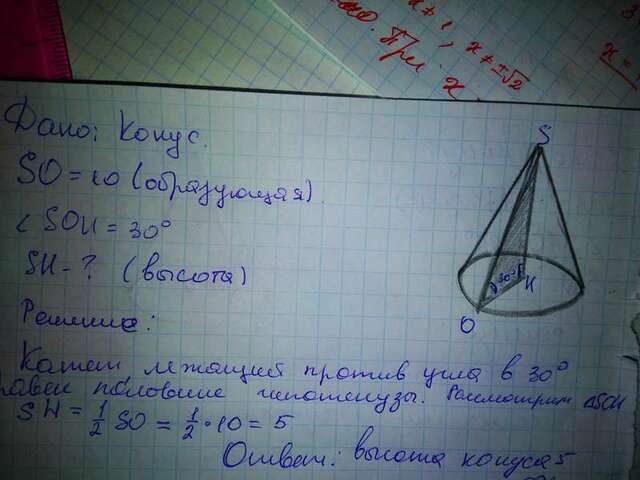 x ≠ ±√2
При x
x =
Дано: Конус.
SO = 10 (образующая).
< SOH = 30°
SH - ? (высота)
S
30°
H
O
Решение:
Катет лежащий против угла в 30°
равен половине гипотенузы. Рассмотрим △SOH
SH = 1/2 SO = 1/2 · 10 = 5
Ответ: высота конуса 5